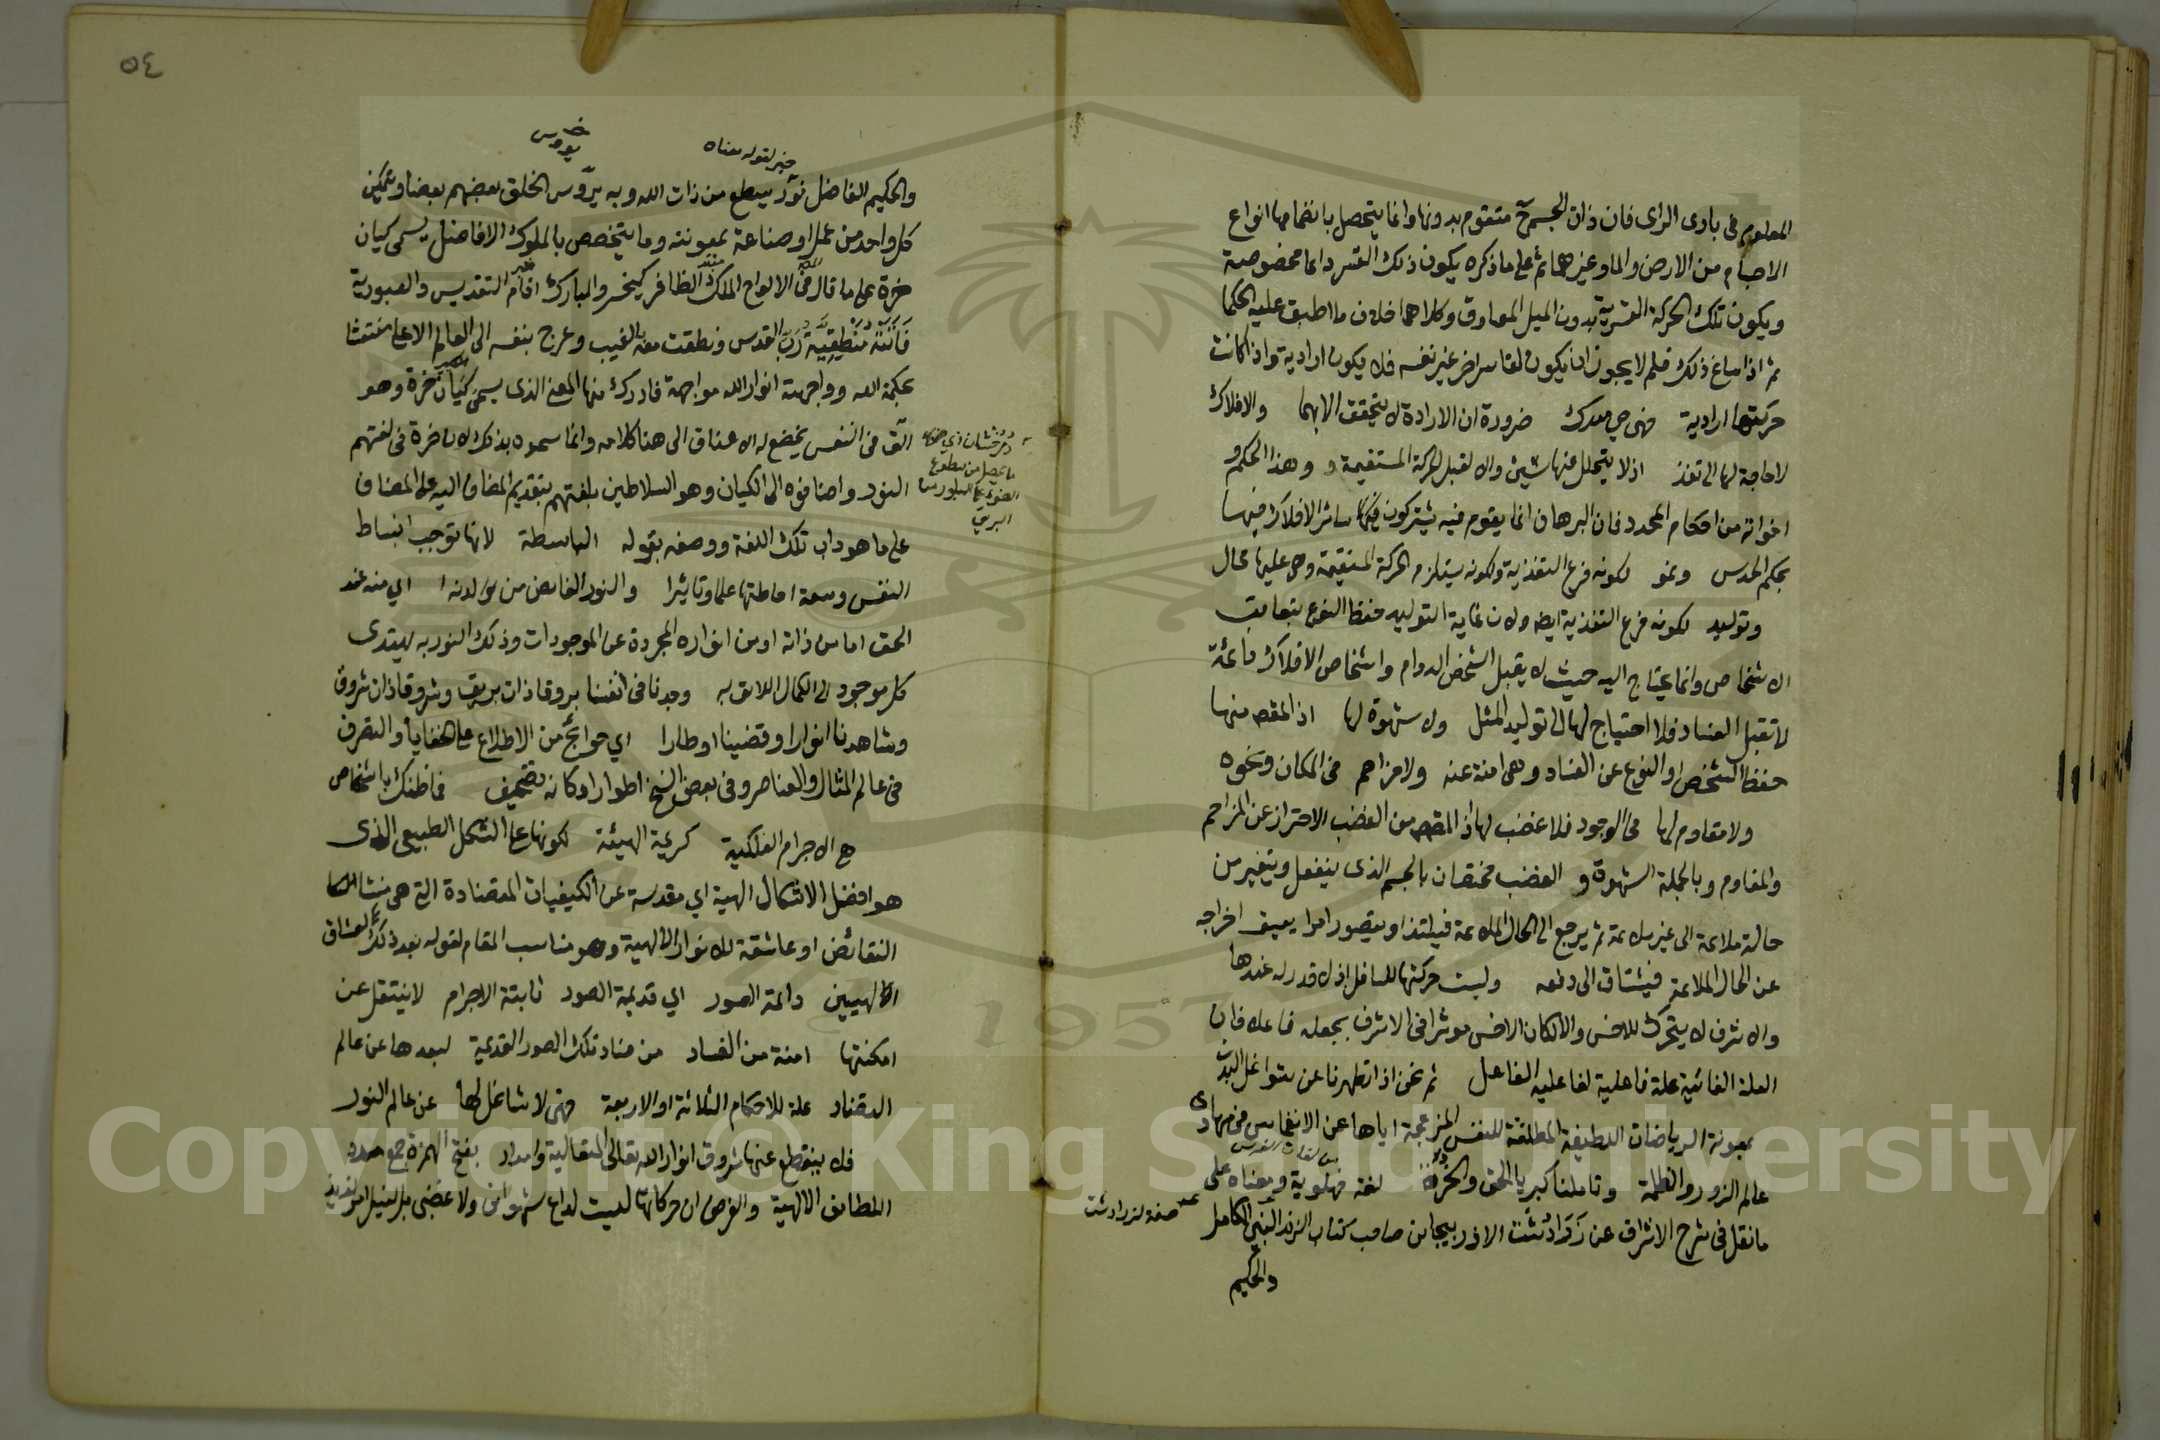 المعلوم في بادى الراى فان ذات الجسم متقوم بدونها وانما يتحصل بانضمامها انواع
الاجسام من الارض والماء وغيرهما ثم على ما ذكره يكون ذلك القسر دائما مخصوصة
ويكون تلك الحركة القسرية بدون الميل المعاوق وكلاهما خلاف ما اطبق عليه الحكما
ثم اذا ساغ ذلك فلم لا يجوز ان يكون لقاسر اخر غير نفسه فلا يكون ارادية واذا كانت
حركتها ارادية فهى حي مدرك ضرورة ان الارادة لا يتحقق الا بهما والافلاك
لا حاجة لها الى تغذ اذ لا يتحلل عنها شيئ والا لقبل الحركة المستقيمة و وهذا الحكم و
اخواته من احكام المحدد فان البرهان انما يقوم فيه يشتركون سائر الافلاك فيها
بحكم الحدس ونمو لكونه فرع التغذية ولكونه يستلزم الحركة المستقيمة وهي عليها محال
وتوليد لكونه فرع التغذية ايضا ولان غاية التوليد حفظ النوع بتعاقب
الاشخاص وانما يحتاج اليه حيث لا يقبل الشخص الدوام واشخاص الافلاك دائمة
لا تقبل الفساد فلا احتياج لها الى توليد المثل ولا شهوة لها اذ المقصد منها
حفظ الشخص او النوع عن الفساد وهى امنة عنه ولا مزاحم في المكان ونحوه
ولا مقاوم لها في الوجود فلا غضب لها اذ المقصد من الغضب الاحتراز عن المزاحم
والمقاوم وبالجملة الشهوة و الغضب مختصان بالجسم الذى ينفعل ويتغير من
حالة ملائمة الى غير ملائمة ثم يرجع الى الحال الملائمة فيلتذ او يتصور امرا يعيق اخراجه
عن الحال الملائمة فيشتاق الى دفعه وليست حركتها للسافل اذ لا قدر له عندها
والاشرف لا يتحرك للاخس والا لكان الاخس موثرا في الاشرف بجعله فاعلا فان
العلة الغائية علة فاعلية لفاعلية الفاعل ثم نحن اذا تطهرنا عن شواغل البدن
بمعونة الرياضات اللطيفة المطلقة للنفس المزعجة اياها عن الانغماس في مهاوى
عالم الزور والظلمة وتاملنا كبريا الحق والخرة لغة فهلوية ومعناه على
من لغات الفرس
ما نقل في شرح الاشراق عن زرادشت الاذربيجاني صاحب كتاب الزند النبي الكامل
صفة لزرادشت
والحكيم
٥٤
خبر لقوله معناه
والحكيم الفاضل نور يسطع من ذات الله وبه يرؤس الخلق بعضهم بعضا ويتمكن
كل واحد من عمل او صناعة بمعونته وما يتخصص بالملوك الافاضل يسمى كيان
خرة على ما قال في الالواح الملك الظافر كيخسرو المبارك اقام التقديس والعبودية
فاتته منطقية رب القدس ونطقت معه الغيب وعرج بنفسه الى العالم الاعلى منتقشا
بحكمة الله وواجهته انوار الله مواجهة فادرك منها المعنى الذى يسمى كيان خرة وهو
الق في النفس يخضع له الاعناق الى هنا كلامه وانما سموه بذلك لان خرة في لغتهم
النور واضافوه الى الكيان وهو السلاطين بلغتهم بتقديم المضاف اليه على المضاف
على ما هو داب تلك اللغة ووصفه بقوله الباسطة لانها توجب انبساط
النفس وسعة احاطتها علما وتاثيرا والنور الفايض من لدنه اي من عند
الحق اما من ذاته او من انواره المجردة عن الموجودات وذلك النور به يهتدى
كل موجود الى الكمال اللائق به وجدنا في انفسنا بروقا ذات بريق وشروقا ذات شروق
وشاهدنا انوارا وقضينا اوطارا اي حوائج من الاطلاع على الخفايا والتصرف
في عالم المثال والعناصر وفي بعض النسخ اطوارا وكانه تصحيف فما ظنك باشخاص
هى الاجرام الفلكية كريمة الهيئة لكونها على الشكل الطبيعى الذى
هو افضل الاشكال الهية اي مقدسة عن الكيفيات المتضادة التى هى منشا
النقائص او عاشقة للانوار الالهية وهو مناسب المقام لقوله بعد ذلك العشاق
الالهيين دائمة الصور اي قديمة الصور ثابتة الاجرام لا ينتقل عن
امكنتها امنة من الفساد من فساد تلك الصور القديمة لبعدها عن عالم
التضاد علة للاحكام الثلاثة او الاربعة فهى لا شاغل لها عن عالم النور
فلا ينقطع عنها شروق انوار الله تعالى المتعالية وامداد بفتح الهمزة جمع مدد
اللطائف الالهية والغرض ان حركاتها ليست لداع شهوانى ولا غضبى بل لنيل امر
درخشان اي ضوء
ما يحصل من سطوع